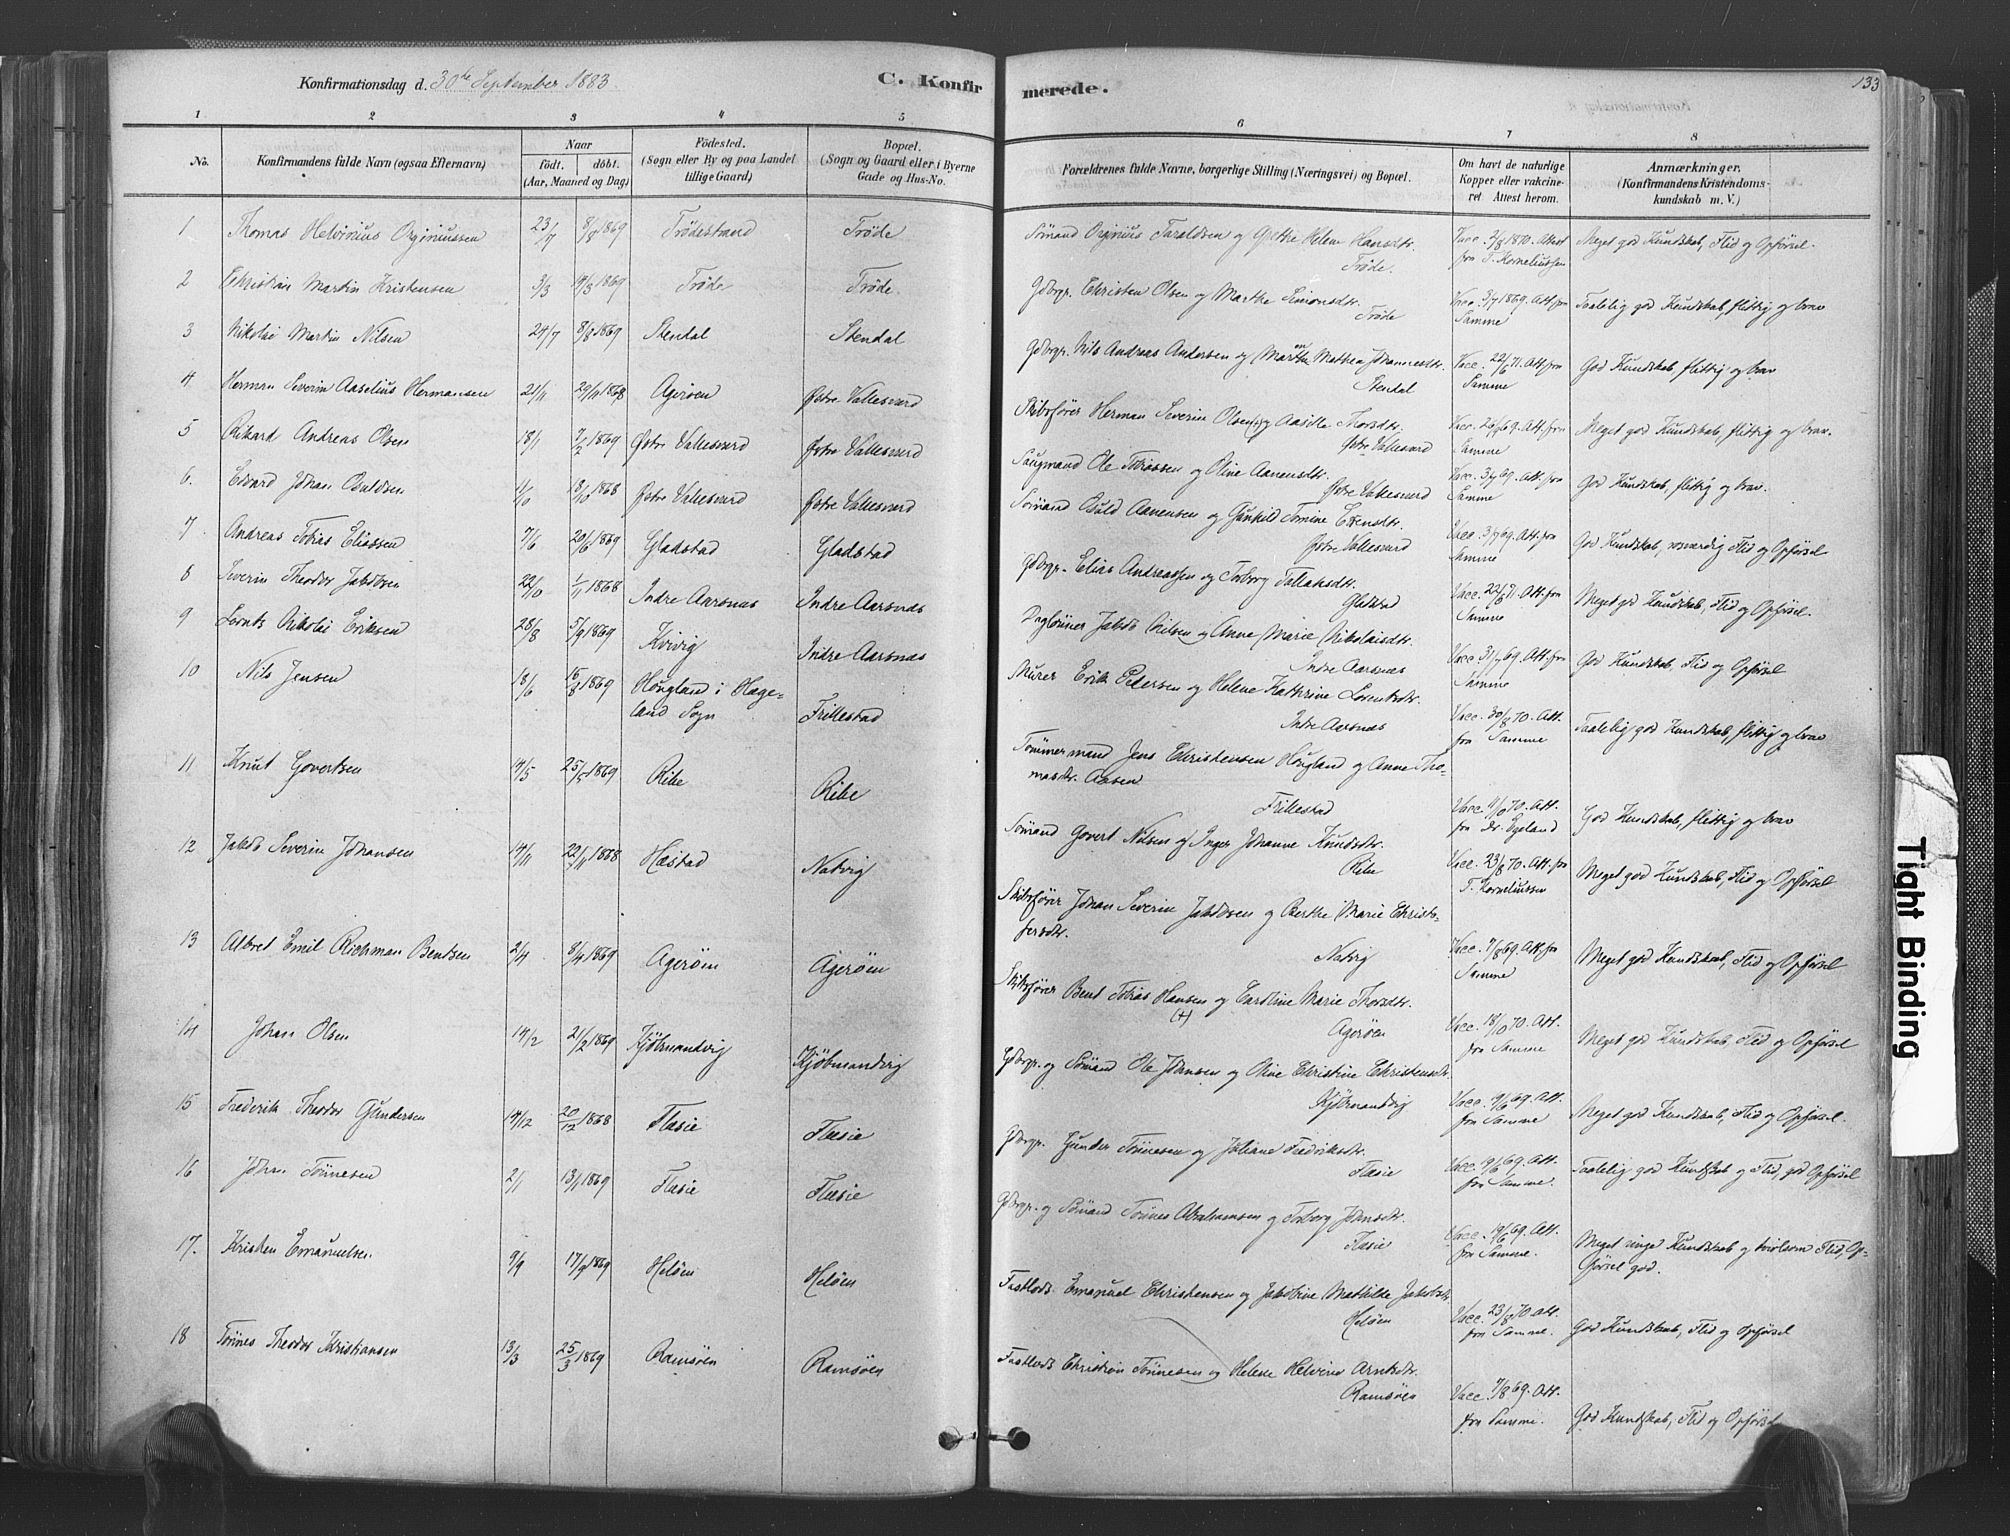 Konfirmationsdag d. 30te September 1883.
C. Konfirmerede.
133
1 2 3 4 5 6 7 8
No.
Konfirmandens fulde Navn (ogsaa Efternavn)
Naar
født. døbt.
(Aar, Maaned og Dag)
Fødested.
(Sogn eller By og paa Landet
tillige Gaard)
Bopæl.
(Sogn og Gaard eller i Byerne
Gade og Hus-No.
Forældrenes fulde Navne, borgerlige Stilling (Næringsvei) og Bopæl.
Om havt de naturlige
Kopper eller vakcine-
ret Attest herom.
Anmærkninger.
(Konfirmandens Kristendoms-
kundskab m. V.)
1 Thomas Helvinius Orginiussen 23/7 8/8 1869 Trødestrand Trøde Sømand Orginius Taraldsen og Grethe Helene Hansdtr. Vacc. 2/8 1870. Attest Meget god Kundskab, Flid og Opførsel.
Trøde. fra T. Korneliussen
2 Christian Martin Kristensen 3/3 14/3 1869 Trøde Trøde Gdbrgr. Christen Olsen og Marthe Simonsdtr. Vacc. 3/7 1869. Att. fra Taalelig god Kundskab, flittig og brav
Trøde Samme
3 Nikolai Martin Nilsen 24/7 8/8 1869 Stendal Stendal Gdbrgr. Nils Andreas Andersen og Mathea Johannesdtr. Vacc. 22/6 71. Att. fra God Kundskab, flittig og brav
Stendal Samme
4 Herman Severin Aaselius Hermansen 21/11 29/11 1868 Agerøen Østre Vallesverd Skibsfører Herman Severin Olsen (+) og Aasille Thorsdtr. Vacc. 26/6 69. Att. fra Meget god Kundskab, flittig og brav.
Østre Vallesverd Samme
5 Rikard Andreas Olsen 18/1 7/2 1869 Østre Vallesverd Østre Vallesverd Saugmand Ole Tobiassen og Oline Aanensdtr. Vacc. 3/7 69. Att. fra God Kundskab, flittig og brav.
Østre Vallesverd Samme
6. Edvard Johan Osuldsen 1/10 18/10 1868 Østre Vallesverd Østre Vallesverd Sømand Osuld Aanensen og Gunhild Tomine Evensdtr. Vacc. 3/7 69. Att. fra God Kundskab, rosværdig Flid og Opførsel
Østre Vallesverd Samme
7 Andreas Tobias Eliassen 7/6 20/6 1869 Gladstad Gladstad Gdbrgr. Elias Andreassen og Torborg Tallaksdtr. Vacc. 22/6 71. Att. fra Meget god Kundskab, Flid og Opførsel.
Gladstad Samme
8 Severin Theodor Jakobsen 22/10 1/11 1868 Indre Aarsnes Indre Aarsnes Daglønner Jakob Nilsen og Anne Marie Nikolaisdtr. Vacc. 31/7 69. Att. fra God Kundskab, Flid og Opførsel
Indre Aarsnes Samme
9 Lorents Nikolai Eriksen 28/8 5/9 1869 Kvivig Indre Aarsnes Murer Erik Pedersen og Helene Kathrine Lorentsdtr. Vacc. 30/8 70. Att. Taalelig god Kundskab, flittig og brav
Indre Aarsnes fra Samme
10 Nils Jensen 18/6 15/8 1869 Hougland i Hæge-
land Sogn Frillestad Tømmermand Jens Christensen Hougland og Anne Tho-
masdtr. Aasen
Frillestad Vacc. 11/10 70. Att. God Kundskab, flittig og brav
fra Dr. Egeland
11 Knut Govertsen 14/5 25/5 1869 Ribe Ribe Sømand Govert Nilsen og Inger Johanne Knudsdtr. Vacc. 23/8 70. Att. fra Meget god Kundskab, Flid og Opførsel
Ribe T. Korneliussen
12 Jakob Severin Johansen 14/11 22/11 1868 Hæstad Natvig Skibsfører Johan Severin Jakobsen og Berthe Marie Christo-
fersdtr.
Natvig Vacc. 7/8 69. Att. fra Meget god Kundskab, Flid og Opførsel
Samme
13 Albret Emil Richman Bentsen 2/4 8/4 1869 Agerøen Agerøen Skibsfører Bent Tobias Hansen (+) og Caroline Marie Thorsdtr. Vacc. 18/10 70. Att. Meget god Kundskab, Flid og Opførsel
Agerøen fra Samme
14 Johan Olsen 14/2 21/2 1869 Kjøbmandvig Kjøbmandvig Gdbrgr. og Sømand Ole Johnsen og Oline Christine Christensdtr. Vacc. 19/6 69. Att. Meget god Kundskab, Flid og Opførsel.
Kjøbmandvig fra Samme
15 Frederik Theodor Gundersen 14/12 20/12 1868 Flasie Flasie Gdbrgr. Gunder Tønnesen og Juliane Fredriksdtr. Vacc. 19/6 69. Att. Taalelig god Kundskab og Flid, god Opførsel
Flasie fra Samme.
16 Johan Tønnesen 2/1 13/1 1869 Flasie Flasie Gdbrgr. og Sømand Tønnes Abrahamsen og Torborg Johnsdtr. Vacc. 19/6 69. Att. Meget ringe Kundskab og tvilsom Flid, Op-
Flasie fra Samme. førsel god.
17. Kristen Emanuelsen 9/9 17/9 1869 Heløen Heløen Fastlods Emanuel Christensen og Jakobine Mathilde Jakobsdtr. Vacc. 23/8 70 Att. God Kundskab, Flid og Opførsel
Heløen fra Samme.
18 Tønnes Theodor Kristiansen 13/3 25/3 1869 Ramsøen Ramsøen Fastlods Christian Tønnesen og Helene Helvine Arntsdtr. Vacc. 7/8 69. Att. God Kundskab, Flid og Opførsel
Ramsøen fra Samme.
Tight Binding